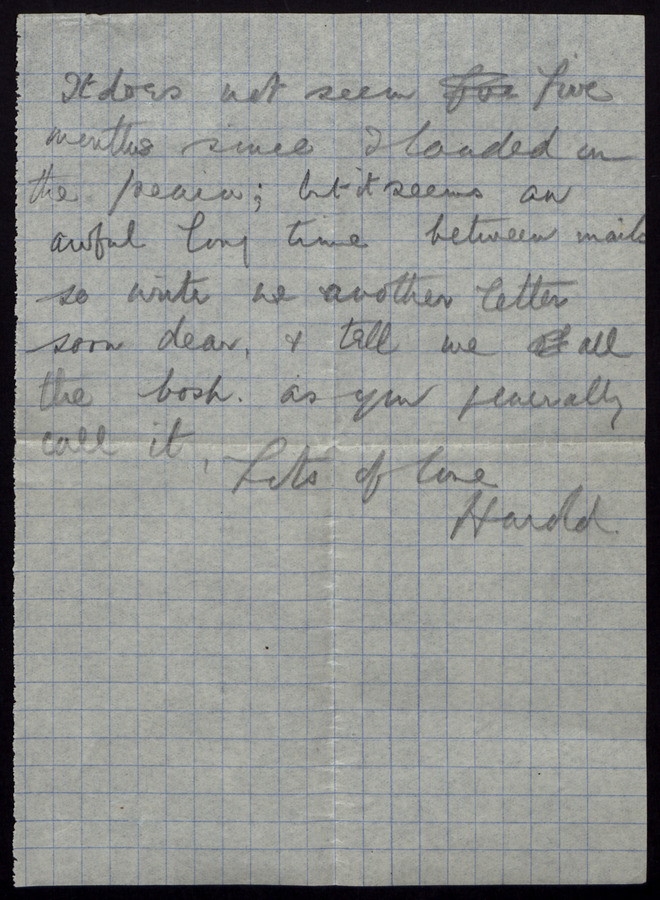 It does not seem five
months since I landed on
the penin; but it seems an
awful long time between mails
so write me another letter
soon dear, & tell me all
the bosh. as you generally
call it,
Lots of love
Harold